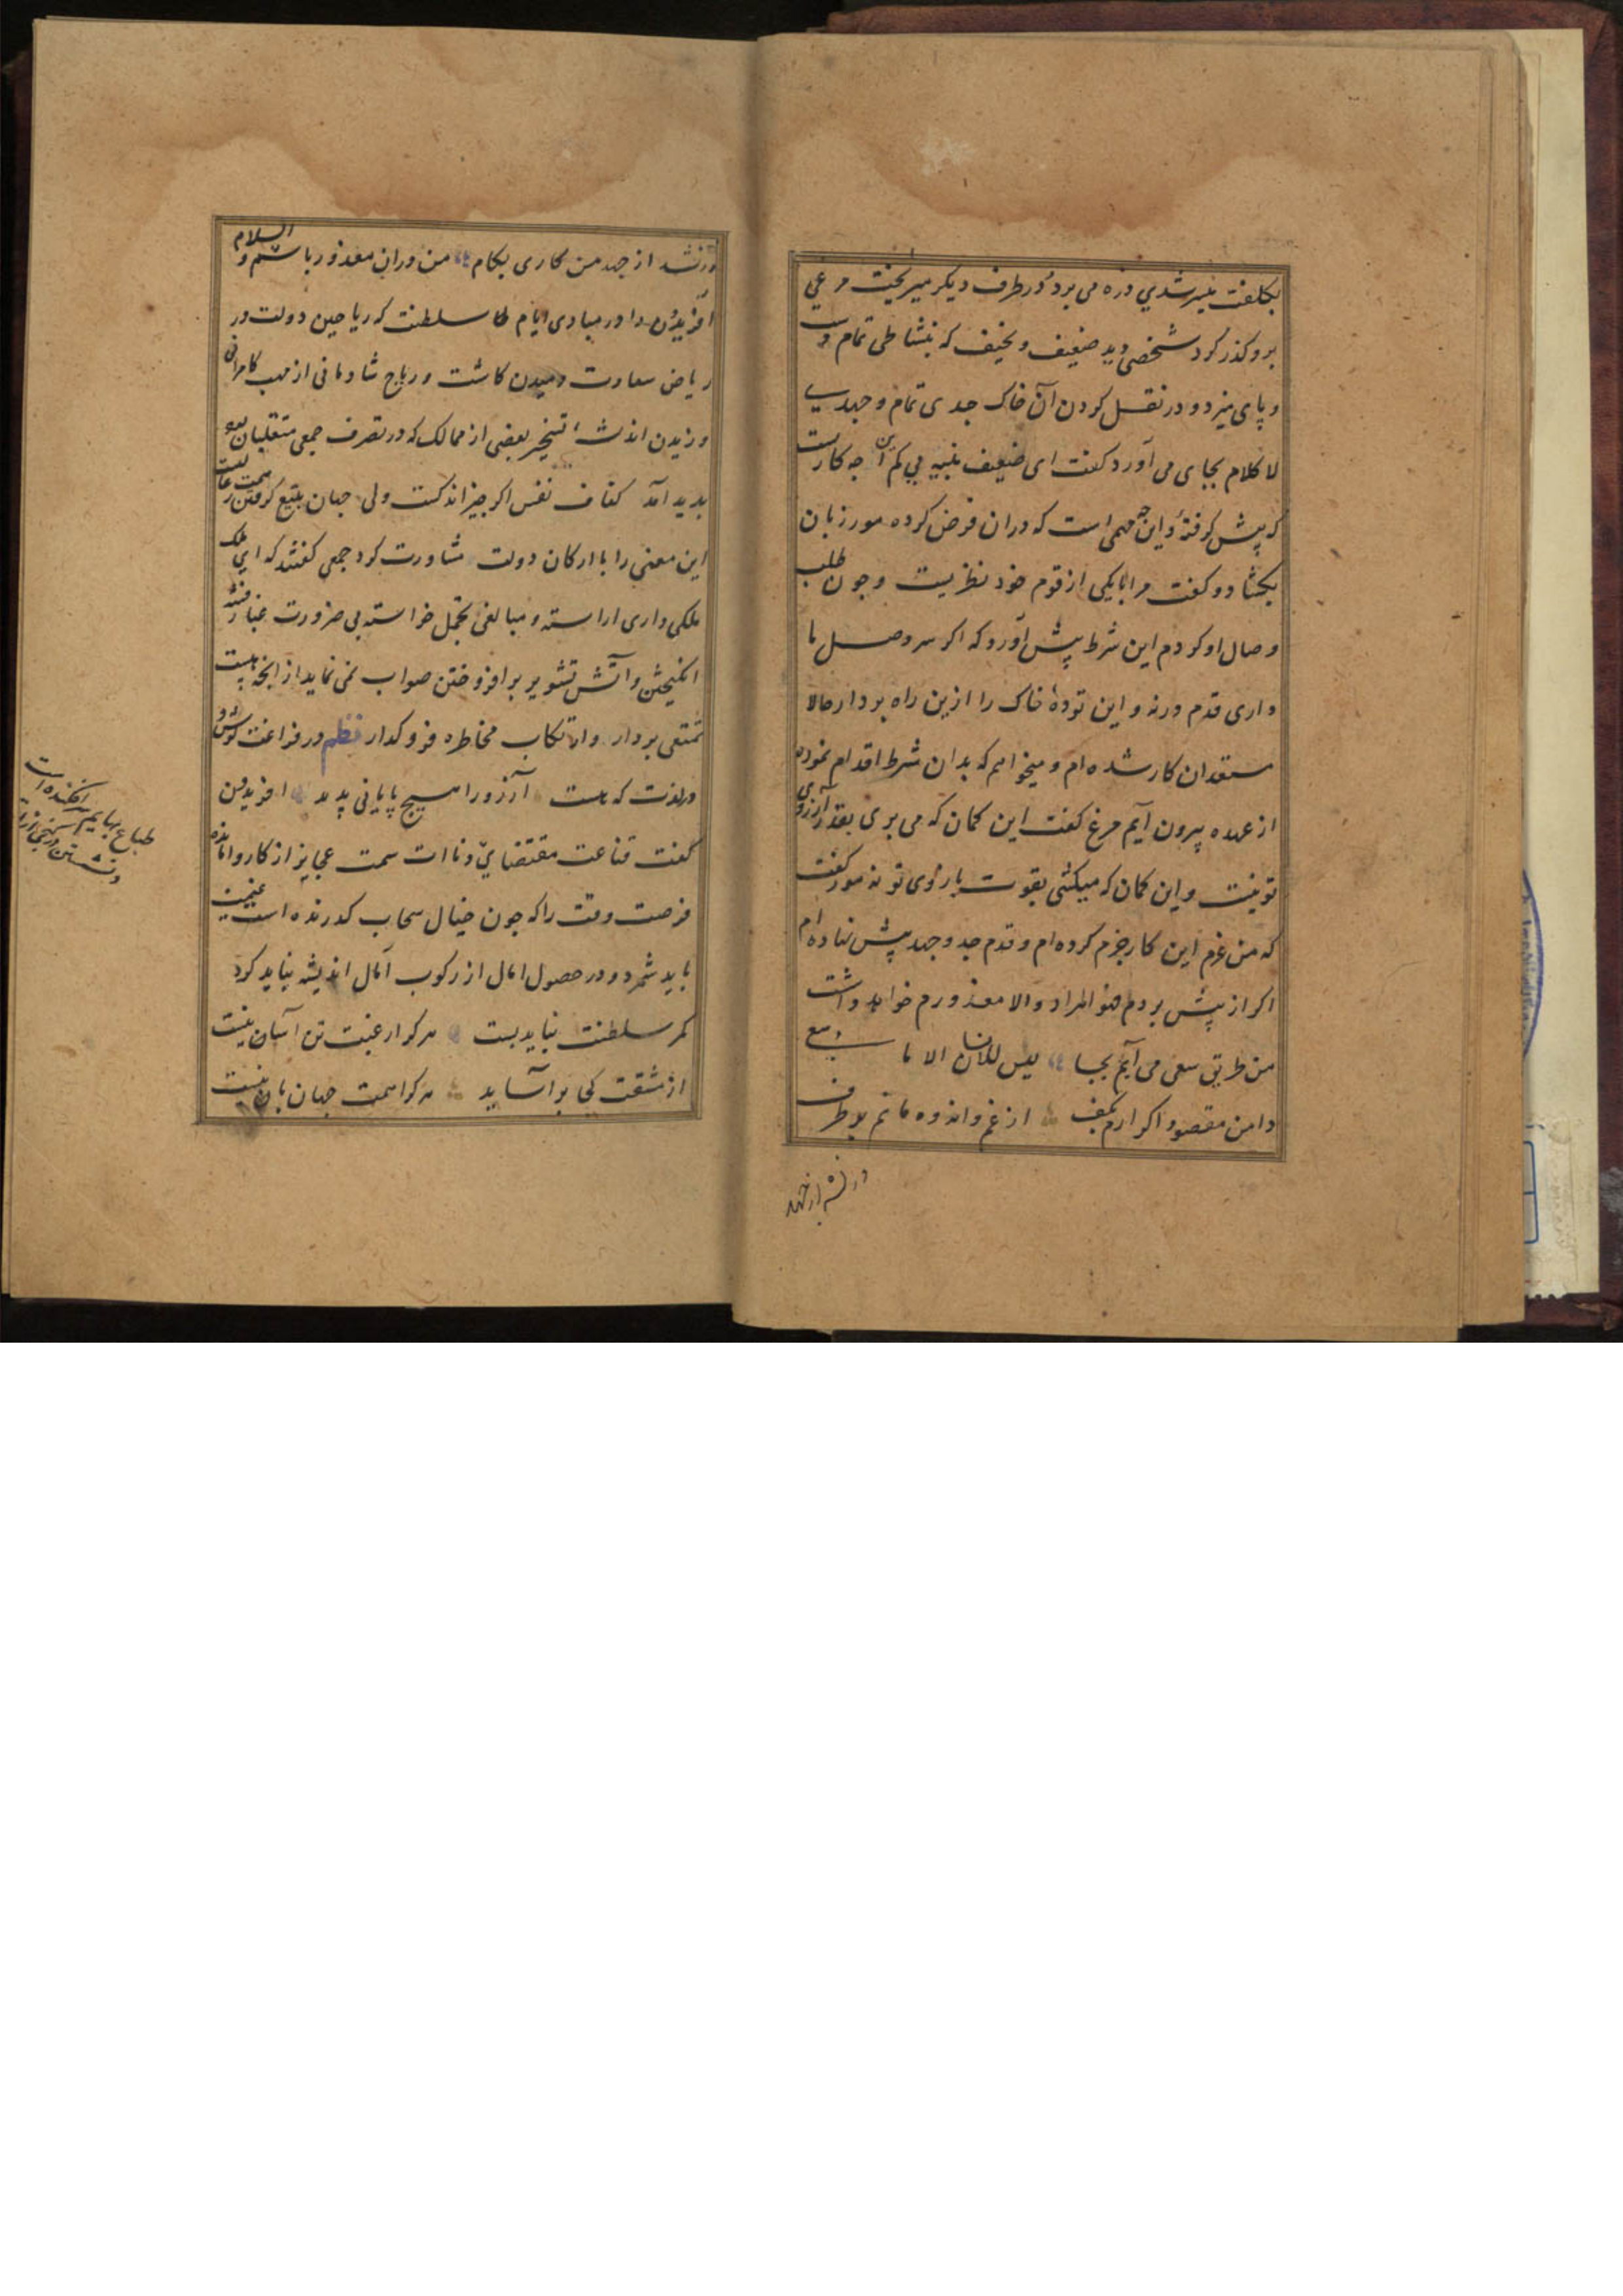 بکلفت میسر شدی ذره می برد و در طرف دیکر میریخت مرغی
برو کذر کرد شخصی دید ضعیف و نحیف که بنشاطی تمام دست
و پای میزد و در نقل کردن آن خاک جدی تمام و جهدی
لا کلام بجای می آورد کفت ای ضعیف بنیه این چه کارست
که پیش کرفتهٔ و این چه مهمی است که دران خوض کرده مور زبان
بکشاد و کفت مرا با یکی از قوم خود نظریست و چون طلب
وصال او کردم این شرط پیش آورد که اکر سر وصل ما
داری قدم درنه و این تودهٔ خاک را ازین راه بردار حالا
مستعد آن کار شده ام و میخواهم که بدان شرط اقدام نموده
از عهده بیرون آیم مرغ کفت این کمان که می بری بقدر آرزوی
تو نیست و این کمان که میکشی بقوت بازوی تو نه مور کفت
که من عزم این کار جزم کرده ام و قدم جد و جهد پیش نهاده ام
اکر از پیش بردم فهو المراد والا معذورم خواهد داشت
من طریق سعی می آرم بجا لیس للانسان الا ما سعی
دامن مقصود اکر آرم بکف از غم و اندوه مانم بر طرف
ور نشد از جهد
ور نشد از جهد من کاری بکام من دران معذور باشم والسلام
افریدون را در مبادی ایام سلطنت که ریاحین دولت در
ریاض سعادت دمیدن کاشت و ریاح شادمانی از مهب کامرانی
وزیدن تسخیر بعضی از ممالک که در تصرف جمعی متغلبان بود
پدید آمد کفاف نفس اکر چیز اندکست ولی جهان بتیغ کرفتن
این معنی را با ارکان دولت مشاورت کرد جمعی کفتند که ای ملک
ملکی داری اراسته و مبالغی تجمل خواسته بی ضرورت غبار فتنه
انکیختن و آتش تشویر بر افروختن صواب نمی نماید از انچه هست
تمتعی بردار و ارتکاب مخاطره فرو کذار نظم در فراغت کوش و
در لذت که هست آرزو را هیچ پایانی پدید افریدون
کفت قناعت مقتضای دناات سمت عجایز از کار وامانده
فرصت وقت را که چون خیال سحاب کذرنده است غنیمت
باید شمرد و در حصول امال از رکوب آمال اندیشه نباید کرد
کمر سلطنت نباید بست هر کرا رغبت تن اسان نیست
از مشقت کی بر آساید هر کرا همت جهان بان نیست
طباع بهایم سر افکنده است